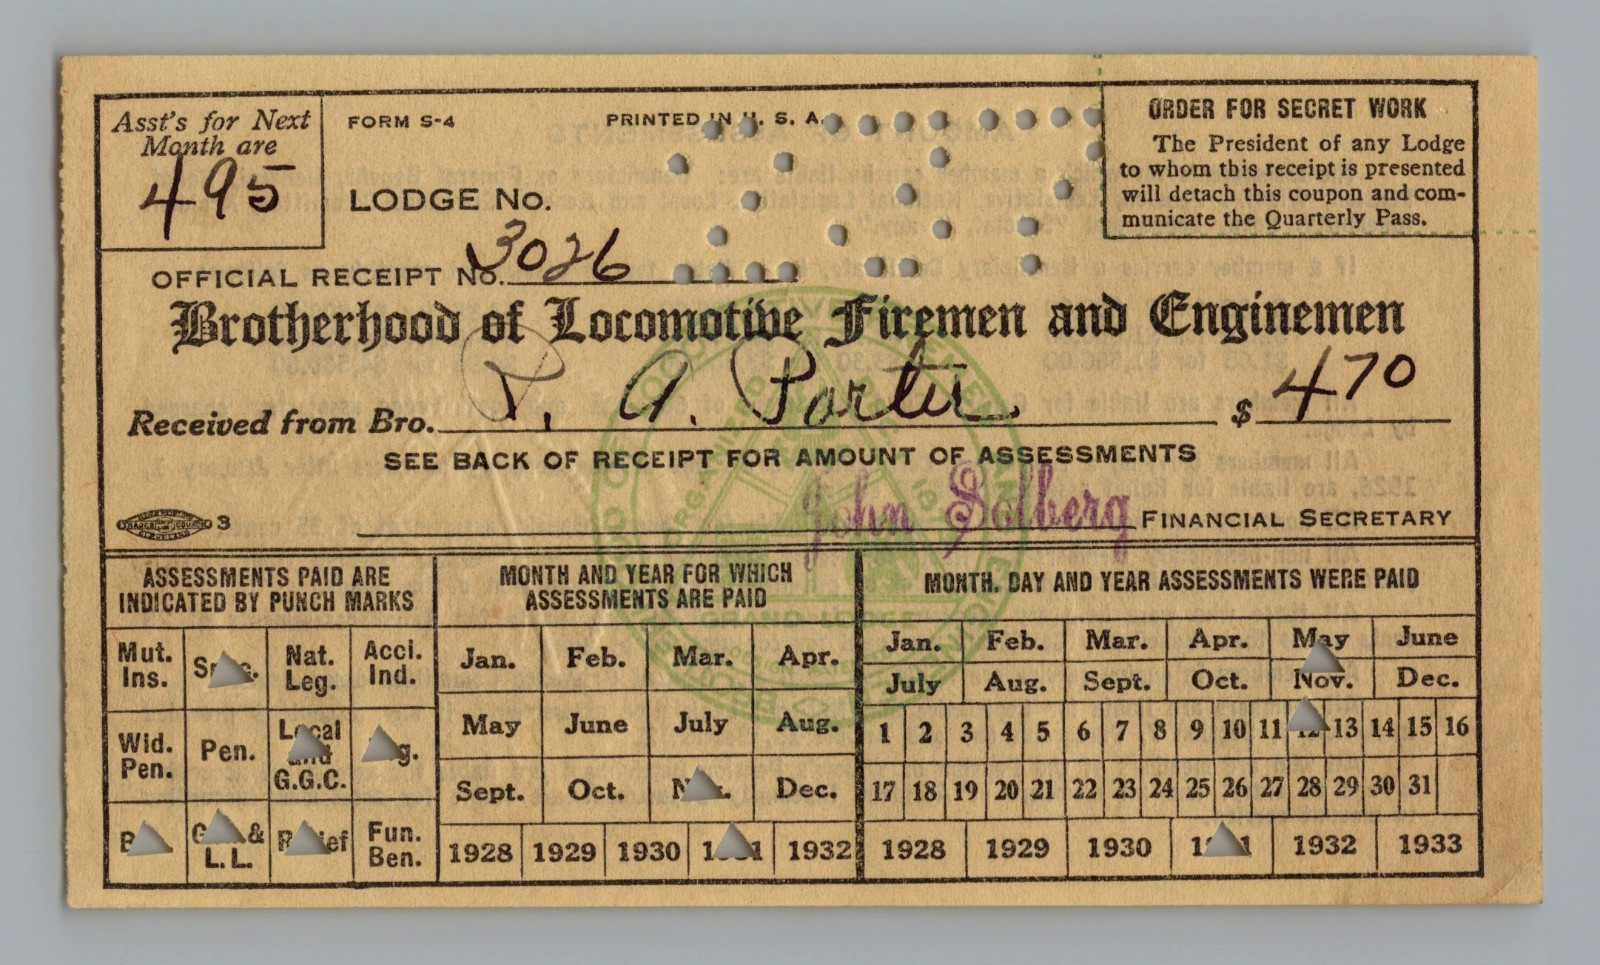 Asst's for Next
Month are
495
FORM S-4
PRINTED IN U. S. A.
LODGE No.
ORDER FOR SECRET WORK
The President of any Lodge
to whom this receipt is presented
will detach this coupon and com-
municate the Quarterly Pass.
OFFICIAL RECEIPT No. 3026
Brotherhood of Locomotive Firemen and Enginemen
Received from Bro. T. A. Porter $ 470
SEE BACK OF RECEIPT FOR AMOUNT OF ASSESSMENTS
John Solberg FINANCIAL SECRETARY
3
ASSESSMENTS PAID ARE
INDICATED BY PUNCH MARKS
Mut. Ins. Spec. Nat. Leg. Acci. Ind.
Wid. Pen. Pen. Local and G.G.C.
G. & L.L. Relief Fun. Ben.
MONTH AND YEAR FOR WHICH
ASSESSMENTS ARE PAID
Jan. Feb. Mar. Apr.
May June July Aug.
Sept. Oct. Nov. Dec.
1928 1929 1930 1931 1932
MONTH, DAY AND YEAR ASSESSMENTS WERE PAID
Jan. Feb. Mar. Apr. May June
July Aug. Sept. Oct. Nov. Dec.
1 2 3 4 5 6 7 8 9 10 11 12 13 14 15 16
17 18 19 20 21 22 23 24 25 26 27 28 29 30 31
1928 1929 1930 1931 1932 1933